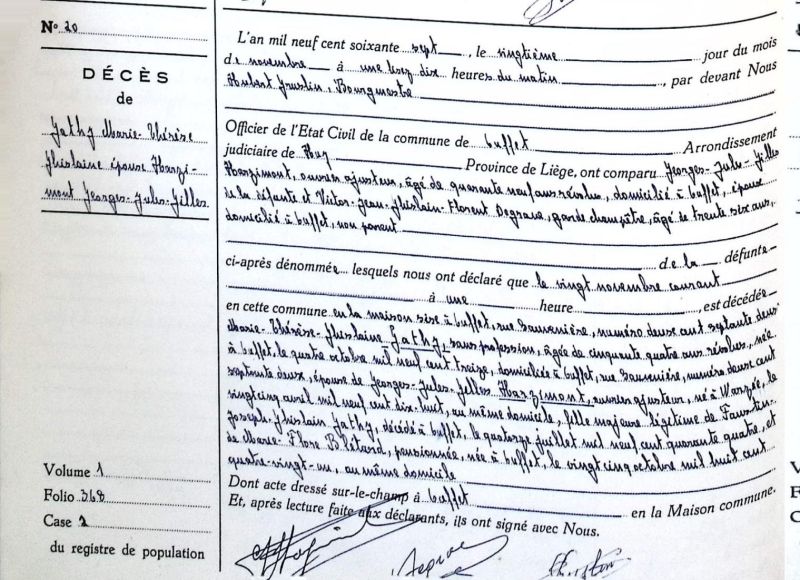 N° 20
DÉCÈS
de
Jathy Marie-Thérèse
Ghislaine épouse Harzi-
mont Georges-Jules-Gilles
Volume 1
Folio 368
Case 2
du registre de population
L'an mil neuf cent soixante sept, le vingtième jour du mois
de novembre à une heure dix heures du matin, par devant Nous
Hubert, Bourgmestre
Officier de l'Etat Civil de la commune de Arrondissement
judiciaire de Huy Province de Liège, ont comparu Georges-Jules-Gilles
Harzimont, ouvrier ajusteur, âgé de quarante neuf ans révolus, domicilié à, époux
de la défunte et Victor-Jean-Ghislain-Florent Degraux, garde champêtre, âgé de trente six ans,
domicilié à, non parent
de la défunte
ci-après dénommée lesquels nous ont déclaré que le vingt novembre courant
à une heure, est décédée
en cette commune en la maison sise à, rue Sauvenière, numéro deux cent septante deux
Marie-Thérèse-Ghislaine Jathy, sans profession, âgée de cinquante quatre ans révolus, née
à, le quatre octobre mil neuf cent treize, domiciliée à, rue Sauvenière, numéro deux cent
septante deux, épouse de Georges-Jules-Gilles Harzimont, ouvrier ajusteur, né à Warzée, le
vingt cinq avril mil neuf cent dix-huit, au même domicile, fille majeure légitime de Faustin-
Joseph-Ghislain Jathy, décédé à, le quatorze juillet mil neuf cent quarante quatre, et
de Marie-Flore Blétard, pensionnée, née à, le vingt cinq octobre mil huit cent
quatre-vingt-un, au même domicile
Dont acte dressé sur-le-champ à en la Maison commune.
Et, après lecture faite aux déclarants, ils ont signé avec Nous.